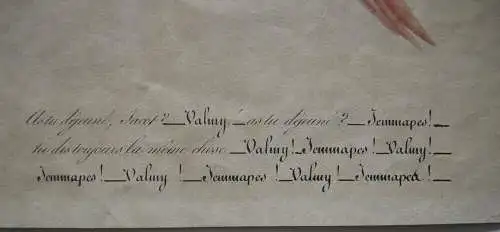 As tu déjeuné, Jacot ? _ Valmy _ as tu déjeuné ? _ Jemmapes ! _
tu dis toujours la même chose _ Valmy ! _ Jemmapes ! _ Valmy ! _
Jemmapes ! _ Valmy ! _ Jemmapes ! _ Valmy ! _ Jemmapes ! _